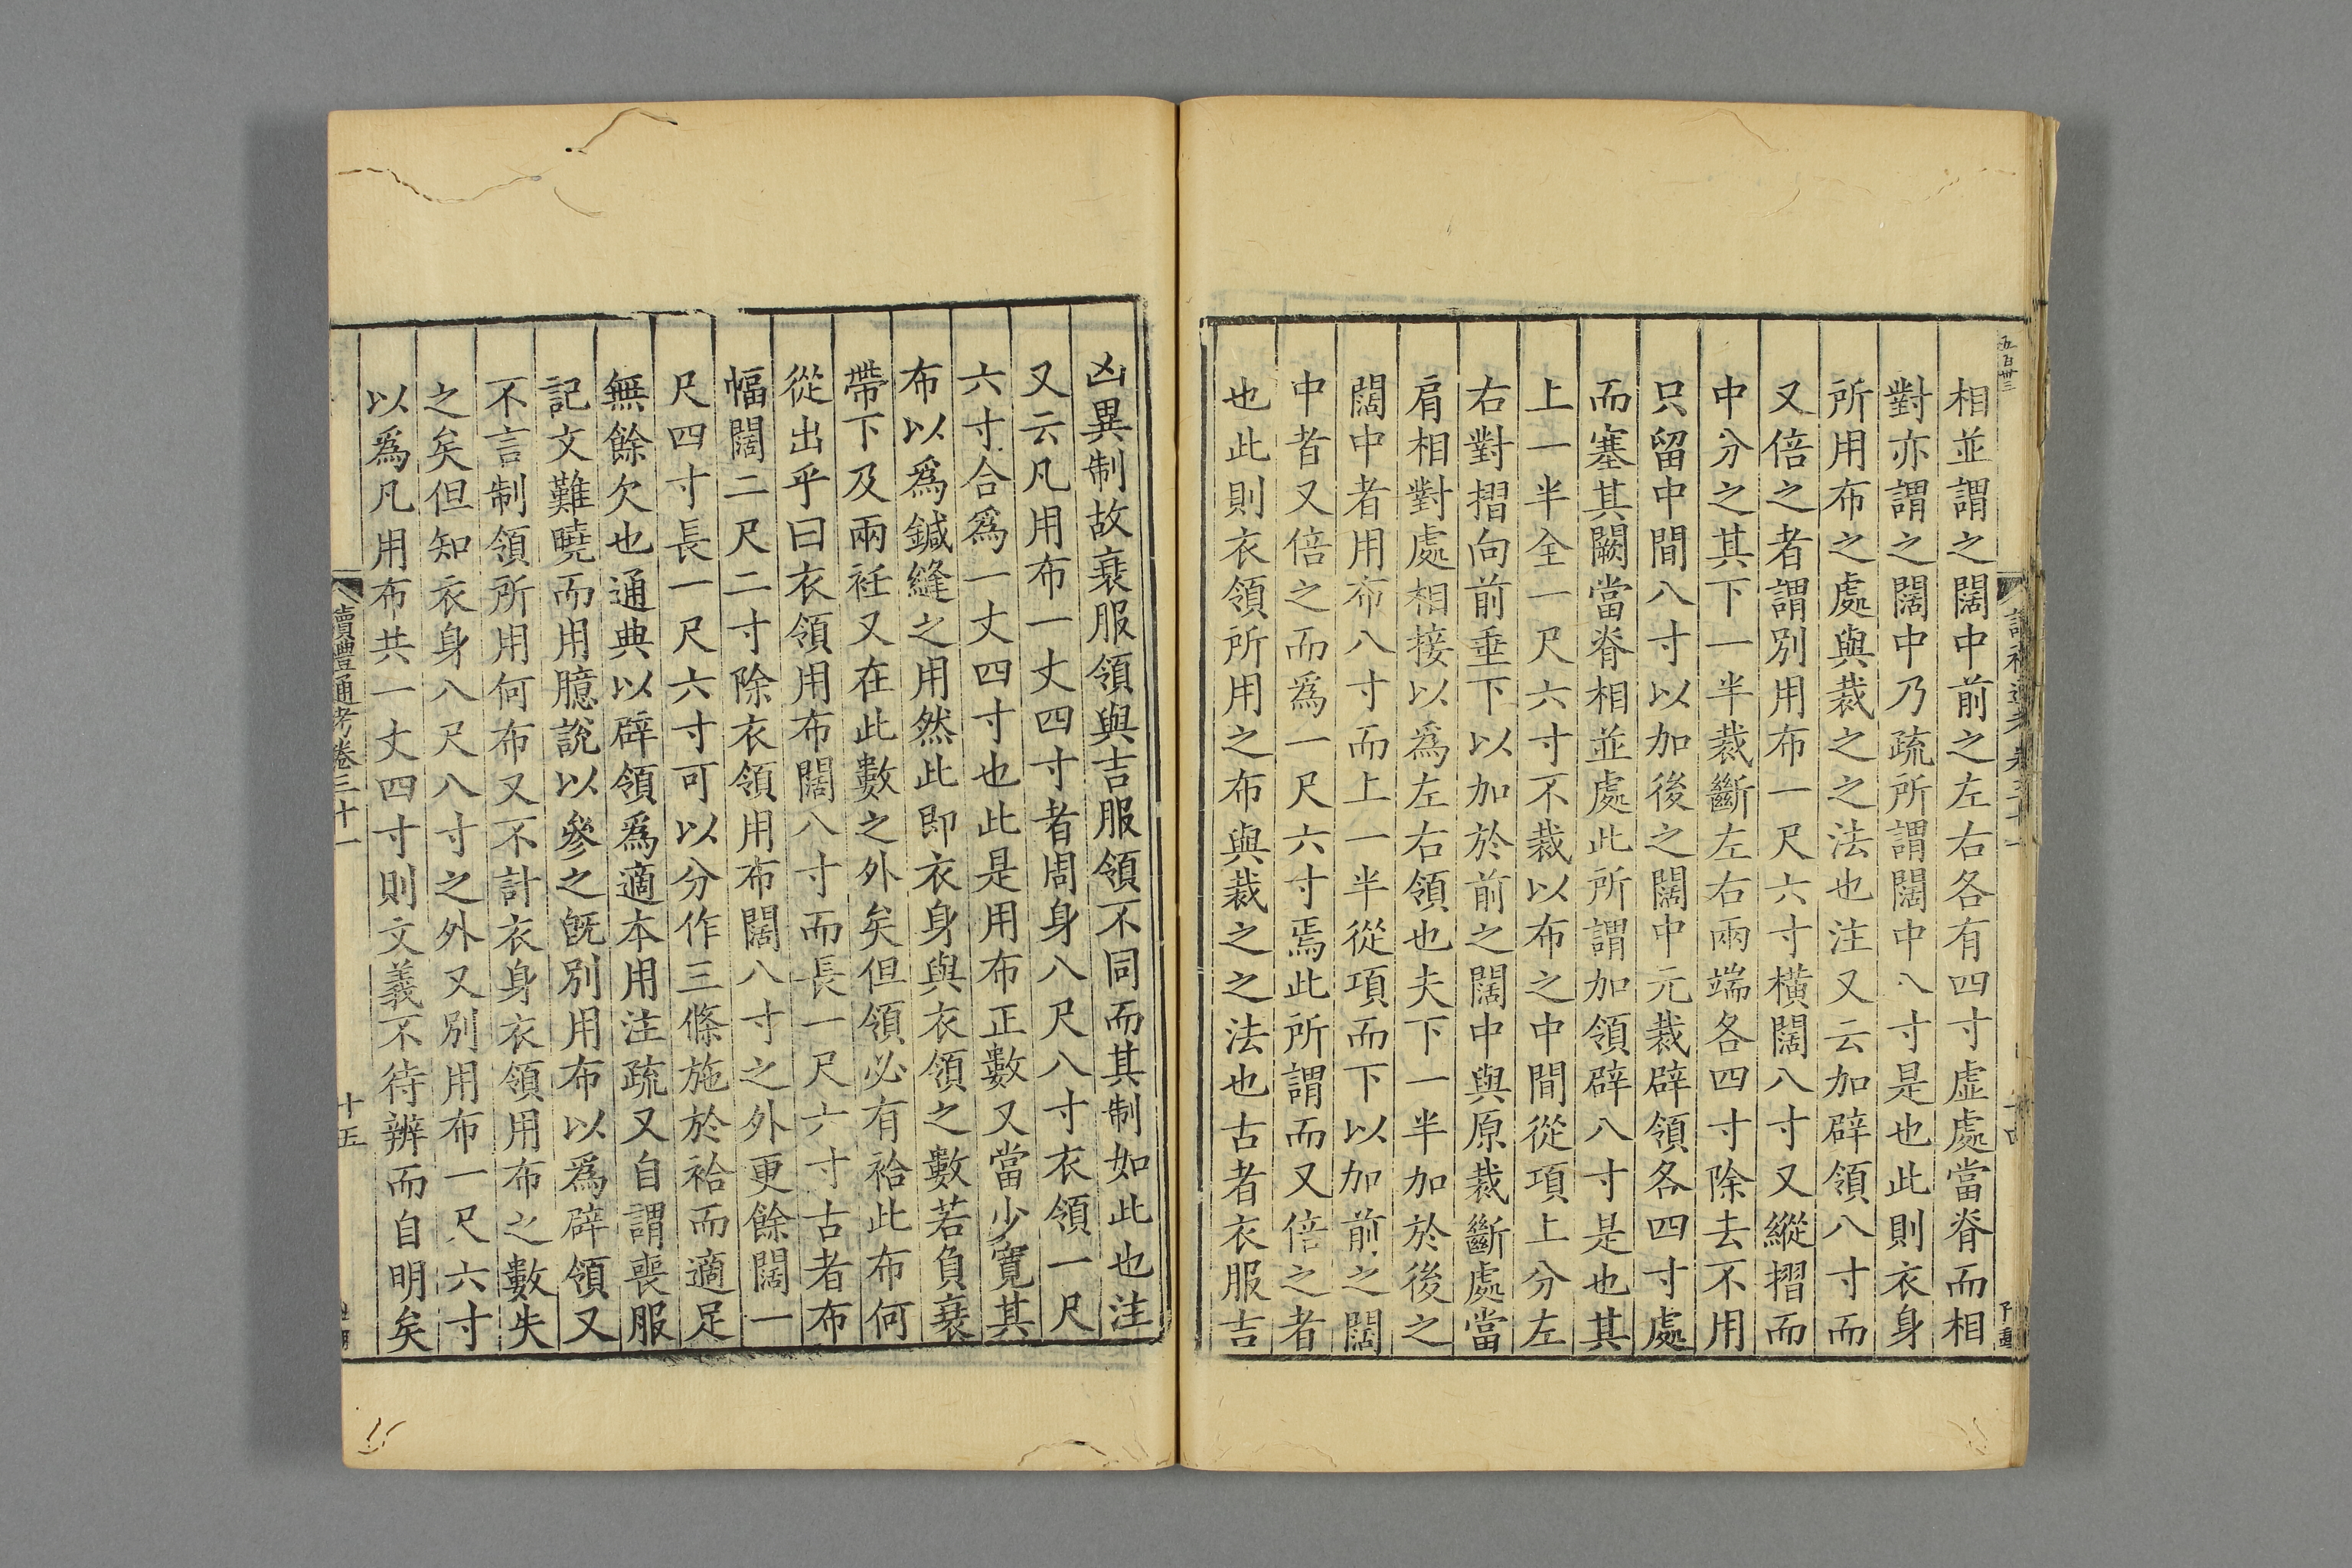 五百卅三
相並謂之闊中前之左右各有四寸虛處當脊而相
對亦謂之闊中乃疏所謂闊中八寸是也此則衣身
所用布之處與裁之之法也注又云加辟領八寸而
又倍之者謂別用布一尺六寸橫闊八寸又縱摺而
中分之其下一半裁斷左右兩端各四寸除去不用
只留中間八寸以加後之闊中元裁辟領各四寸處
而塞其闕當脊相並處此所謂加領辟八寸是也其
上一半全一尺六寸不裁以布之中間從項上分左
右對摺向前垂下以加於前之闊中與原裁斷處當
肩相對處相接以爲左右領也夫下一半加於後之
闊中者用布八寸而上一半從項而下以加前之闊
中者又倍之而爲一尺六寸焉此所謂而又倍之者
也此則衣領所用之布與裁之之法也古者衣服吉
凶異制故衰服領與吉服領不同而其制如此也注
又云凡用布一丈四寸者周身八尺八寸衣領一尺
六寸合爲一丈四寸也此是用布正數又當少寬其
布以爲鍼縫之用然此即衣身與衣領之數若負衰
帶下及兩衽又在此數之外矣但領必有袷此布何
從出乎曰衣領用布闊八寸而長一尺六寸古者布
幅闊二尺二寸除衣領用布闊八寸之外更餘闊一
尺四寸長一尺六寸可以分作三條施於袷而適足
無餘欠也通典以辟領爲適本用注疏又自謂喪服
記文難曉而用臆說以參之旣別用布以爲辟領又
不言制領所用何布又不計衣身衣領用布之數失
之矣但知衣身八尺八寸之外又別用布一尺六寸
以爲凡用布共一丈四寸則文義不待辨而自明矣
讀禮通考卷三十一
十五